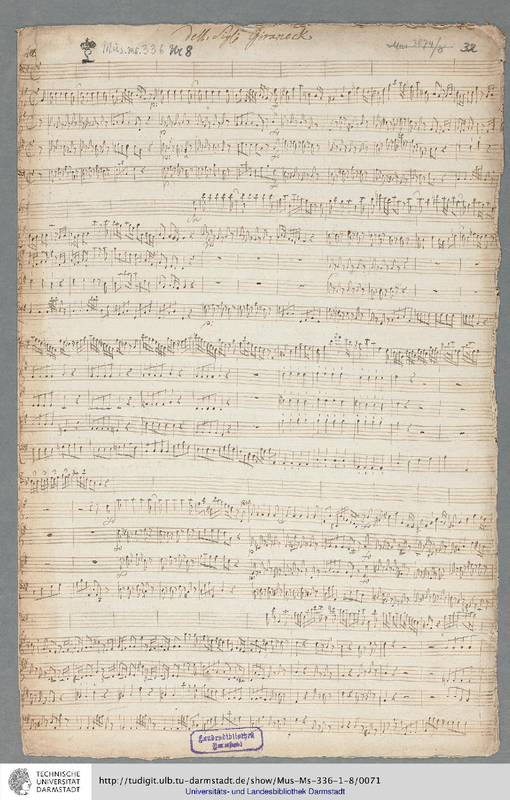 dell. Sigr. Giraneck.
Mus. ms. 336 Nr 8
32
Landesbibliothek
Darmstadt
TECHNISCHE
UNIVERSITÄT
DARMSTADT
http://tudigit.ulb.tu-darmstadt.de/show/Mus-Ms-336-1-8/0071
Universitäts- und Landesbibliothek Darmstadt